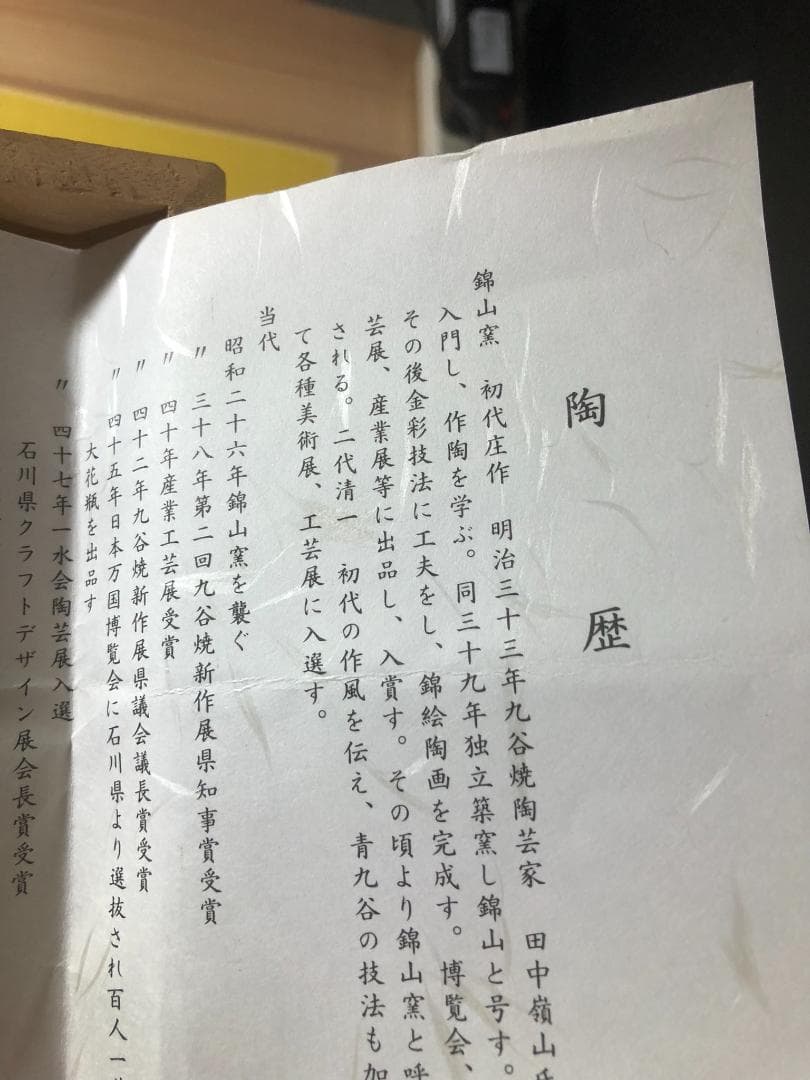 陶歴
錦山窯 初代庄作 明治三十三年九谷焼陶芸家 田中嶺山氏
入門し、作陶を学ぶ。同三十九年独立築窯し錦山と号す。
その後金彩技法に工夫をし、錦絵陶画を完成す。博覧会、
芸展、産業展等に出品し、入賞す。その頃より錦山窯と呼
される。二代清一 初代の作風を伝え、青九谷の技法も加
て各種美術展、工芸展に入選す。
当代
昭和二十六年錦山窯を襲ぐ
〃 三十八年第二回九谷焼新作展県知事賞受賞
〃 四十年産業工芸展受賞
〃 四十二年九谷焼新作展県議会議長賞受賞
〃 四十五年日本万国博覧会に石川県より選抜され百人一
大花瓶を出品す
〃 四十七年一水会陶芸展入選
石川県クラフトデザイン展会長賞受賞